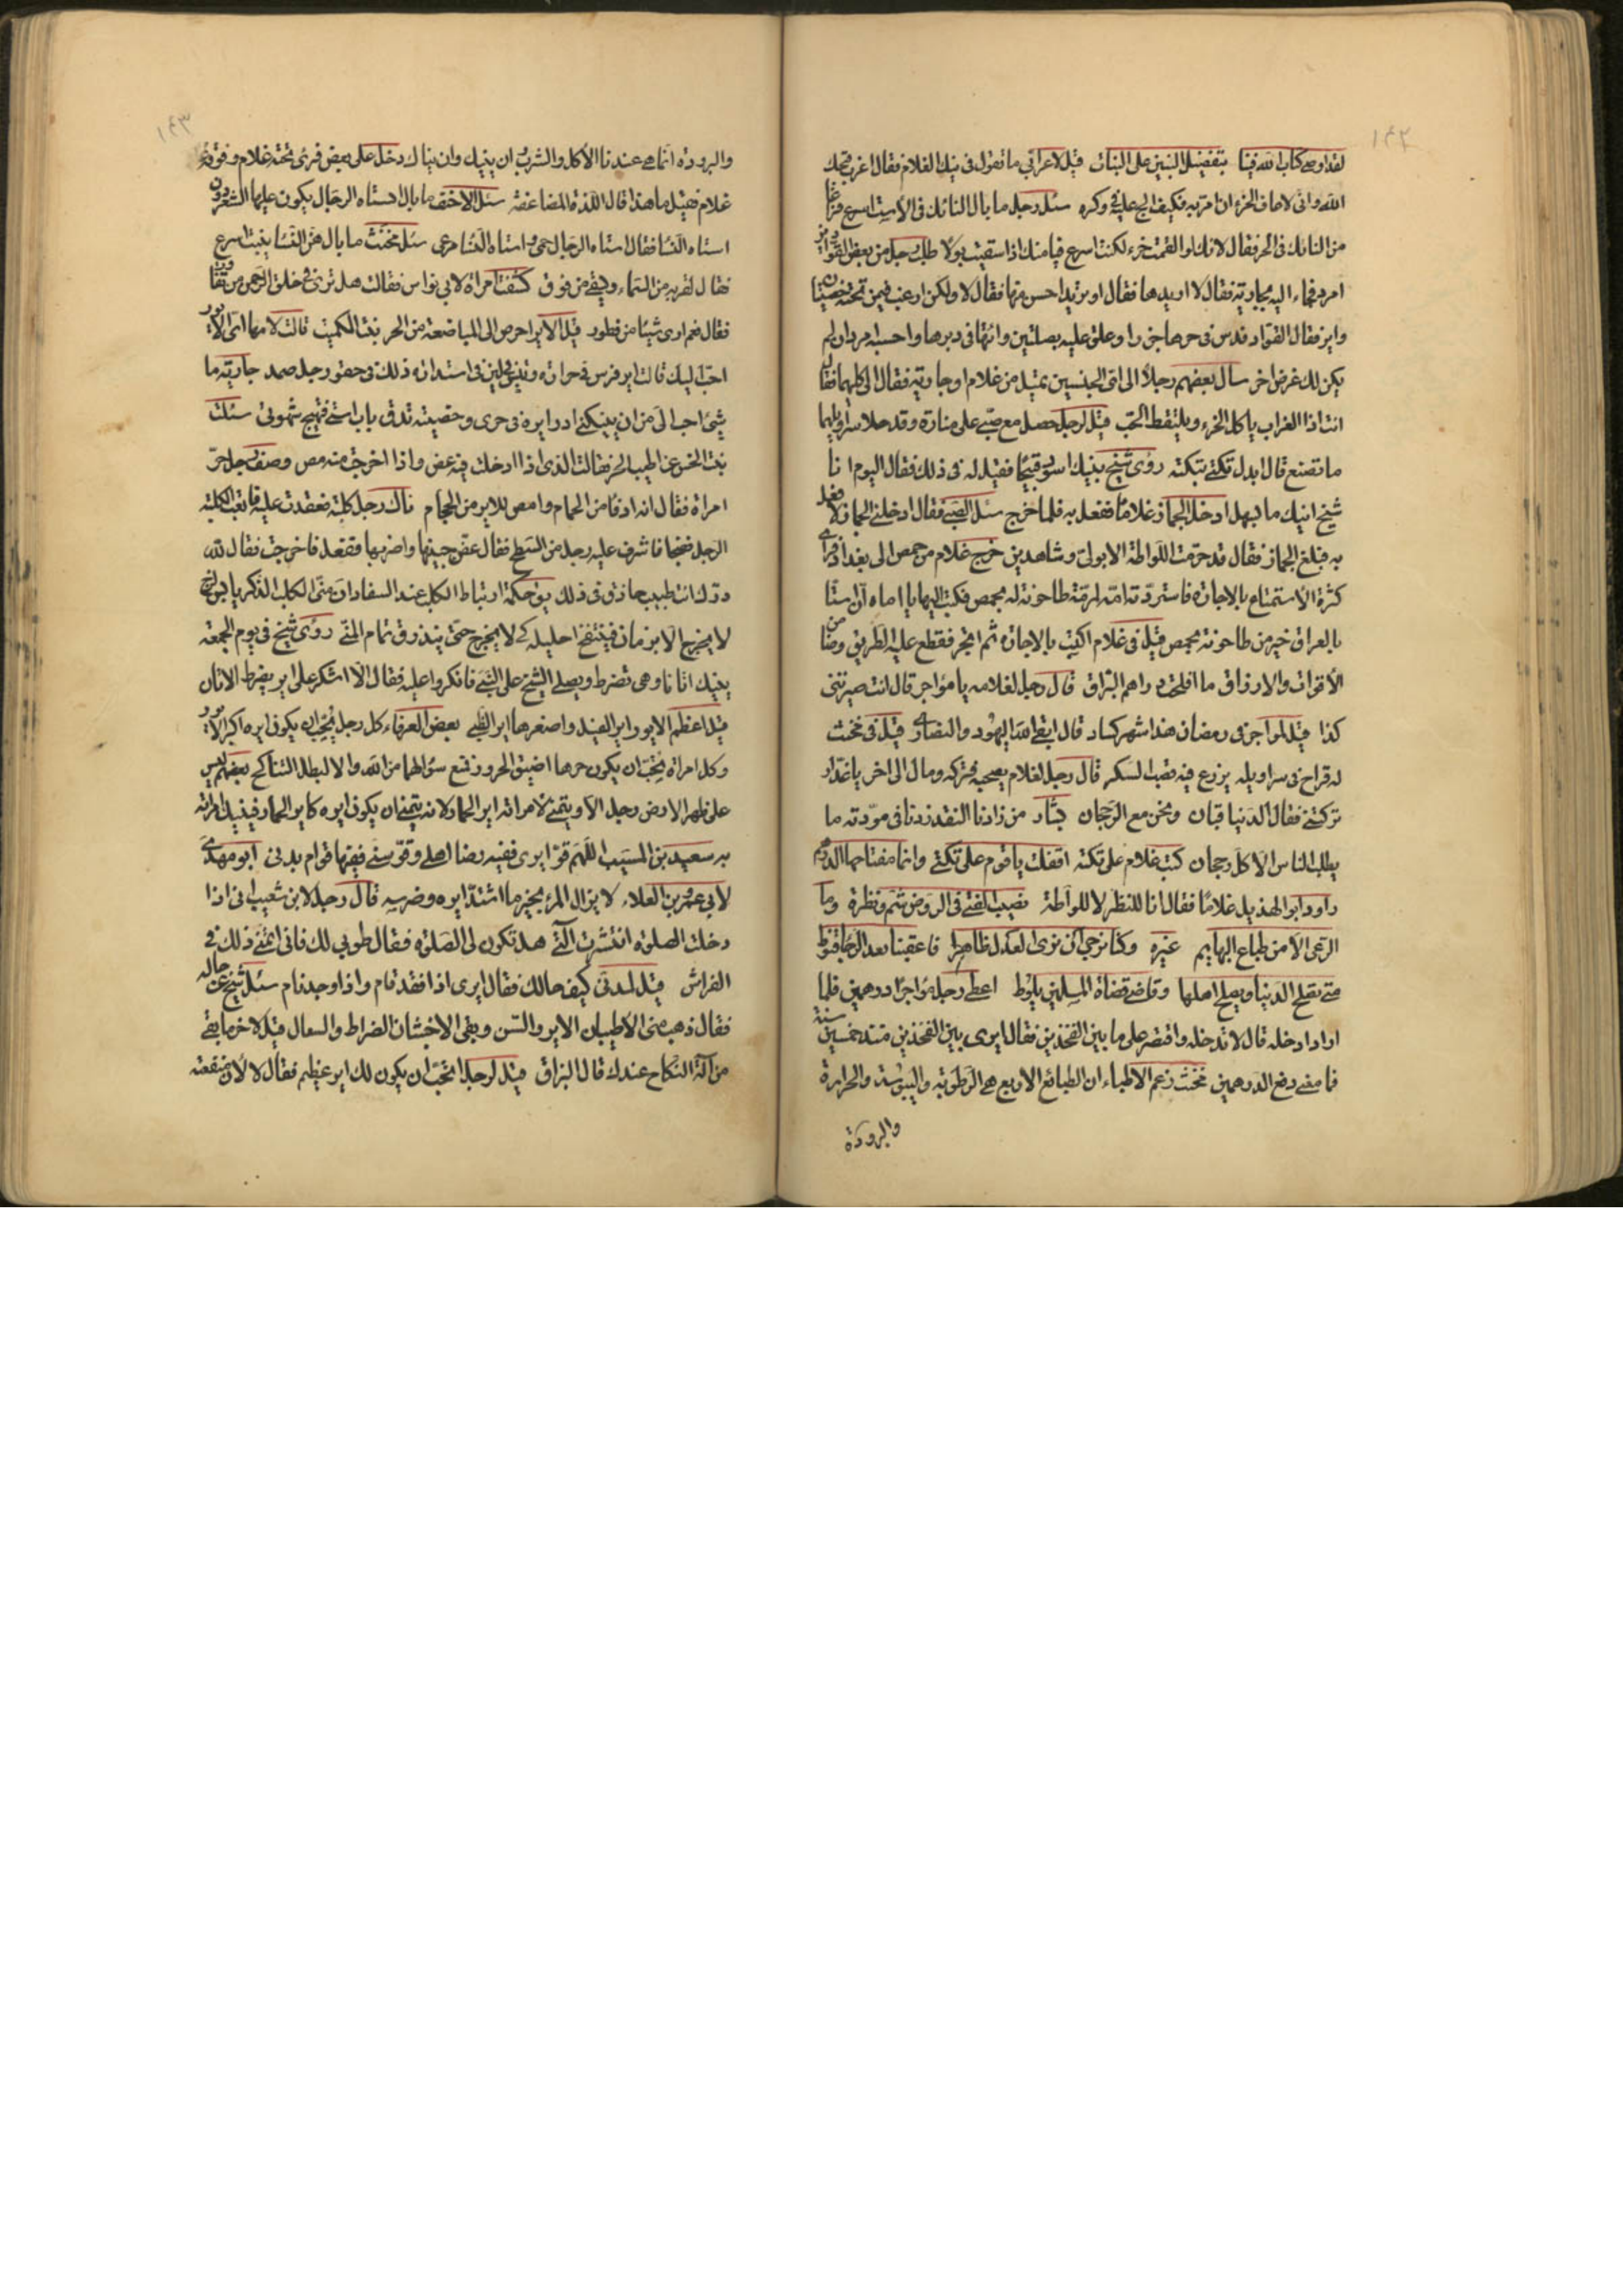 ١٩٢
لقد اوصى كتاب الله فينا بتفضيل البنين على البنات قيل لاعرابي ما تقول في نيك الغلام فقال اعزب قبحك
الله واني لاعاف الخرء ان امر به فكيف الج عليه في وكره سئل رجل ما بال النائك في الاست اسرع فراغا
من النائك في الحر فقال لانك لو القمت خرء لكنت اسرع قيا منك اذا سقيت بولا طلب رجل من بعض القوادين
امرد فجاء اليه بجارية فقال لا اريدها فقال او تريد احسن منها فقال لا ولكن ارغب فيمن تحته خصيتان
واير فقال القواد فدس في حرها جزرا وعلق عليه بصلتين وائتها في دبرها واحسبه امردا ان لم
يكن لك غرض اخر سأل بعضهم رجلا الى اي الجنسين تميل من غلام او جارية فقال الى كليهما فقال
انت اذا الغراب ياكل الخرء ويلتقط الحب قيل لرجل حصل مع صبي على منارة وقد حلا سراويلهما
ما تصنع قال ابدل تكتي بتكته رؤى شيخ ينيك اسود قبيحا فقيل له في ذلك فقال اليوم انا
شيخ انيك ما تسهل ادخل الجماز غلاما ففعل به فلما خرج سئل الصبي فقال ادخلني الجماز لافعل
به فبلغ الجماز فقال قد حرمت اللواطة الا بولي وشاهدين خرج غلام من حمص الى بغداد فرأى
كثرة الاستمتاع بالاجارة فاستردته امه لمرمة طاحونة له بحمص فكتب اليها يا اماه ان استا
بالعراق خير من طاحونة بحمص قيل في غلام اكتسب بالاجارة ثم اتجر فقطع عليه الطريق وضامن
الاقوات والارزاق ما افلحت دراهم البزاق قال رجل لغلامه يا مؤاجر قال انت صيرتني
كذا قيل لمواجر في رمضان هذا شهر كساد قال ابقى الله اليهود والنصارى قيل في مخنث
له قراح في سراويله يزرع فيه قصب السكر قال رجل لغلام يصحبه فتركه ومال الى اخر يا غدار
تركتني فقال الدنيا قبان ونحن مع الرجحان بشار من زادنا النقد زدنا في مودته ما
يطلب الناس الا كل رجحان كتب غلام على تكته اقفلت يا قوم على تكتي وانما مفتاحها الدرهم
راود ابو الهذيل غلاما فقال انا للنظر لا للواطة نصيب الفتى في الروض شم ونظرة وما
الرعى الا من طباع البهايم غيره وكنا نرجي ان نرى العدل ظاهرا فاعقبنا بعد الرجا قنوط
متى تصلح الدنيا ويصلح اهلها وقاضي قضاة المسلمين يلوط اعطى رجل مؤاجرا درهمين فلما
اراد ادخله قال لا تدخله واقتصر على ما بين الفخذين فقال ايرى بين الفخذين منذ خمسين سنة
فما معنى دفع الدرهمين مخنث زعم الاطباء ان الطبائع الاربع هي الرطوبة واليبوسة والحرارة
والبرودة
١٩٣
والبرودة انما هي عندنا الاكل والشرب وان ينيك وان يناك دخل على بعض فرئى تحته غلام وفوقه
غلام فقيل ما هذا قال اللذة المضاعفة سئل الاحنف ما بال استاه الرجال يكون عليها الشعر دون
استاه النسا فقال استاه الرجال حمى واستاه النسا مرعى سئل مخنث ما بال هن النسا ينبت اسرع
فقال لقربه من السماد ويسقى من فوق كشفت امراة لابي نواس فقالت هل ترى في خلق الرحمن من تفاوت
فقال نعم ارى شيئا من فطور قيل الاير احرص الى المباضعة من الحر بنت الكميت قالت لامها اى الايور
احب اليك قالت اير فرس في حرارة وتدبير في استدارة ذلك في حقو رجل صمد جارية ما
شئ احب الى من ان ينيكني ادر ايره في حرى وخصيته تدق باب استي فتهيج شهوتي سئلت
بنت الخس عن اطيب الحر فقالت الذى اذا ادخلت فيه عض واذا اخرجت منه مص وصف رجل حر
امراة فقال انه ادفأ من الحمام وامص للاير من الحجام ناك رجل كلبة فعقدت عليه فاتعبت الكلبة
الرجل فصحبا فاشرف عليه رجل من السطح فقال عض جبينها واضربها ففعل فاخرجت فقال لله
درك انت طبيب حاذق في ذلك حكمة ارتباط الكلب عند السفاد ان منى الكلب الذكر
لا يخرج الا بزمان فينتفخ احليله كي لا يخرج حتى ينذرق تمام المنى رؤى شيخ في يوم الجمعة
ينيك اتانا وهي تضرط ويصلى الشيخ على النبي فانكروا عليه فقال الا اشكر على اير يضرط الاتان
قيل اعظم الايور اير الفيل واصغرها اير الظبي بعض العرفاء كل رجل يحب ان يكون ايره اكبر الايور
وكل امراة تحب ان يكون حرها اضيق الحرور فمنع سؤالهما من الله والا لبطل التناكح بعضهم ليس
على ظهر الارض رجل الا ويتمنى لامراته اير الحمار لانه يتمنى ان يكون ايره كاير الحمار فينيك امراته
به سعيد بن المسيب اللهم قو ايرى ففيه رضا اهلي وقو سني ففيها قوام بدني ابو مهدي
لابي عمرو بن العلاء لا يزال المرء بخير ما اشتد ايره وضرسه قال رجل لابن شعيب اني اذا
دخلت الصلوة انتشرت التي هل تكون لي الصلوة فقال طوبى لك فاني اتمنى ذلك في
الفراش قيل لمدني كيف حالك فقال ايرى اذا فقد قام واذا وجد نام سئل شيخ عن حاله
فقال ذهب مني الاطيبان الاير والسن وبقي الاخبثان الضراط والسعال قيل لاخر ما بقي
من آلة النكاح عندك قال البزاق قيل لرجل اتحب ان يكون لك اير عظيم فقال لا لان منفعته